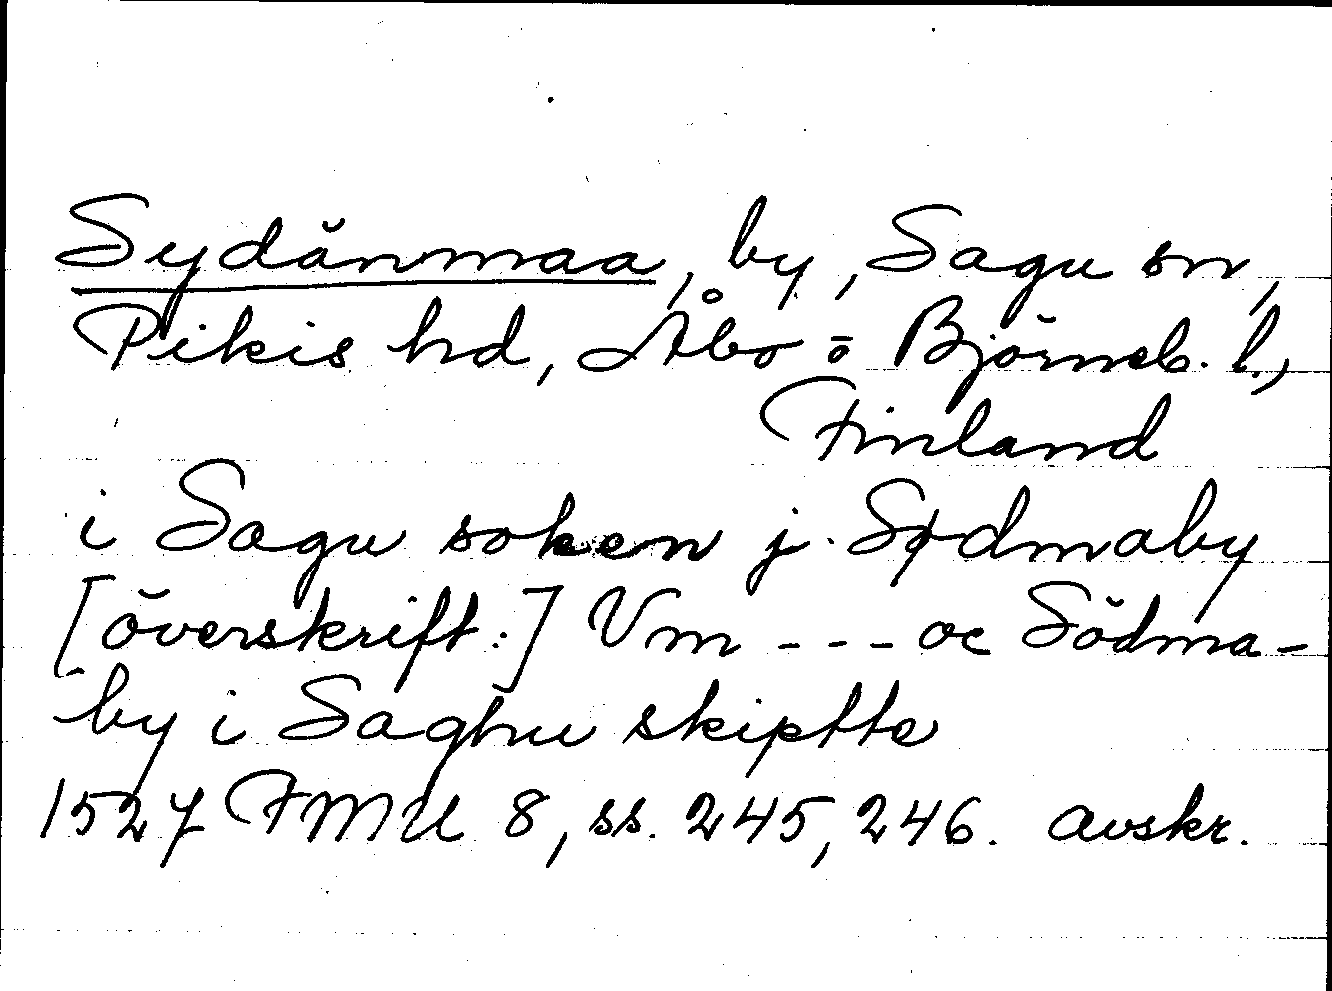 Sydänmaa, by, Sagu sn,
Pikis hd, Åbo o Björneb. l.,
Finland
i Sagu soken j. Sødmaby
[överskrift:] Vm --- oc Södma-
by i Saghu skiptte
1527 FMU 8, ss. 245, 246. avskr.